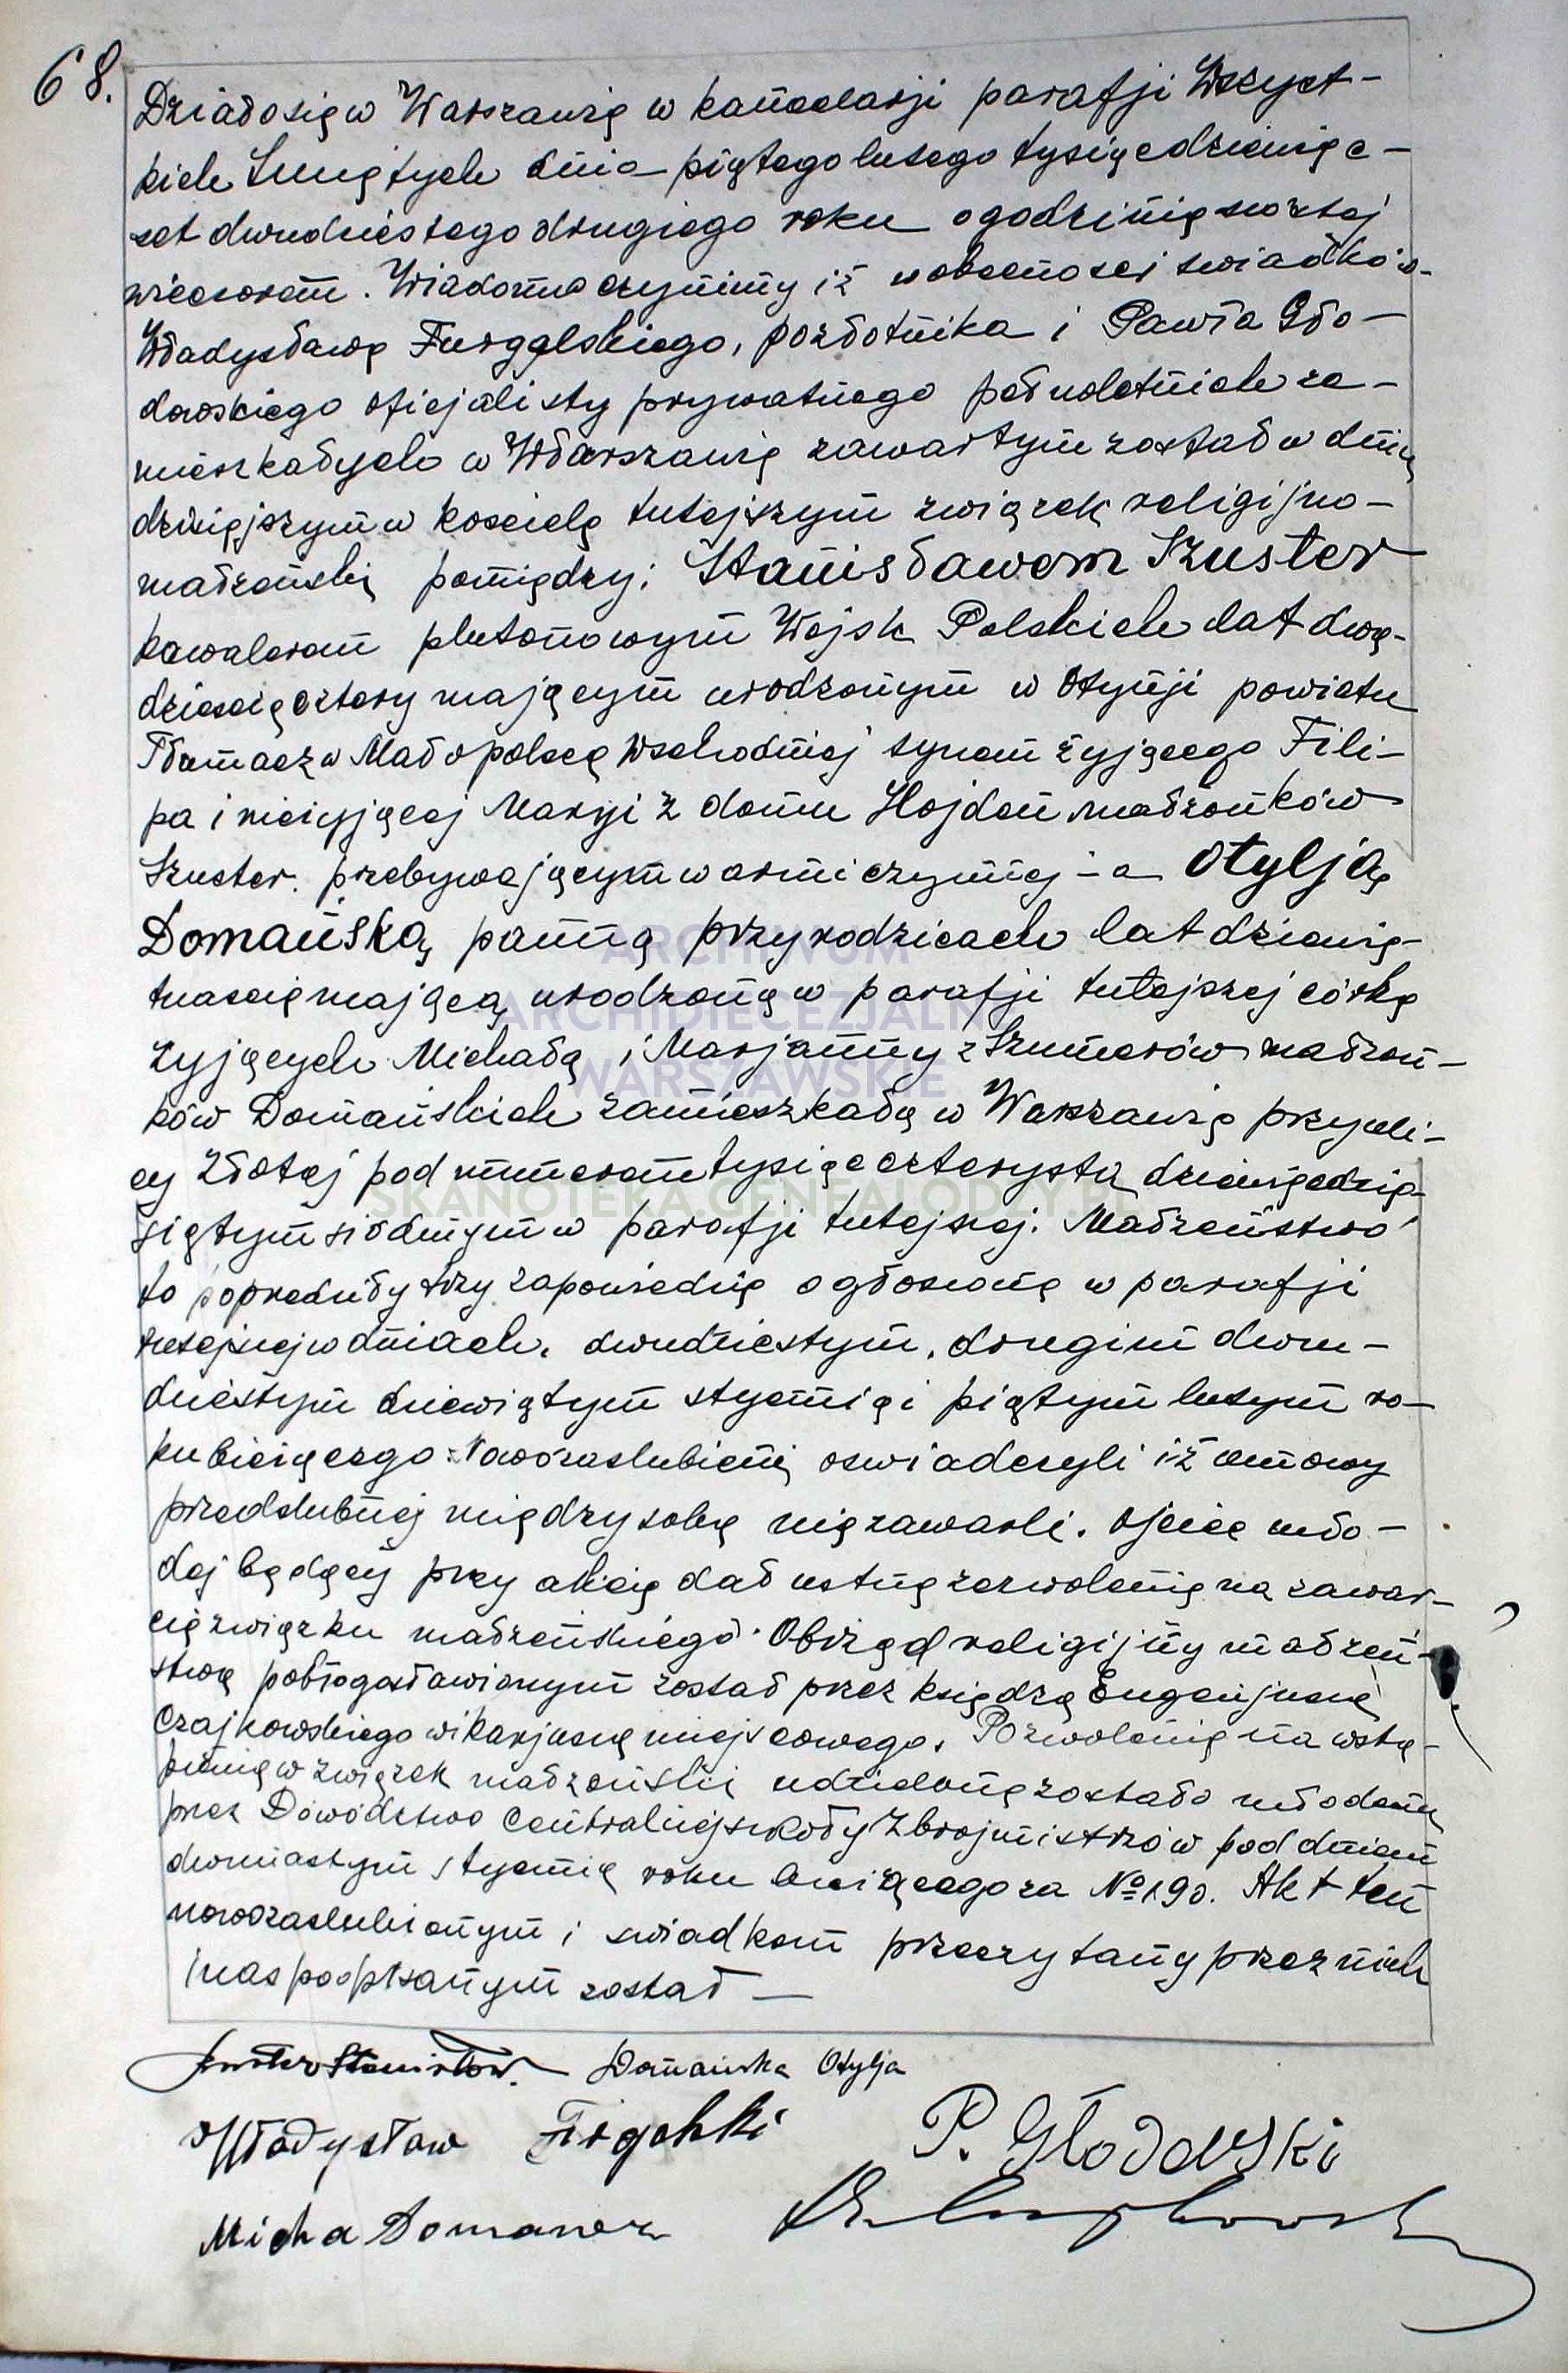 68.
Działo się w Warszawie w kancelarji parafji Wszyst-
kich Świętych dnia piątego lutego tysiąc dziewięć-
set dwudziestego drugiego roku o godzinie szóstej
wieczorem. Wiadomo czynimy iż w obecności świadków
Władysława Furgalskiego, pozłotnika i Pawła Gło-
dowskiego oficjalisty prywatnego pełnoletnich za-
mieszkałych w Warszawie zawartym został w dniu
dzisiejszym w kościele tutejszym związek religijno-
małżeński pomiędzy: Stanisławem Szuster
kawalerem plutonowym Wojsk Polskich lat dwa-
dzieścia cztery mającym urodzonym w Otynji powiatu
Tłumacz w Małopolsce Wschodniej synem żyjącego Fili-
pa i nieżyjącej Maryi z domu Hojdan małżonków
Szuster. przebywającym w armii czynnej - a Otylją
Domańską, panną przy rodzicach lat dziewięt-
naście mającą, urodzoną w parafji tutejszej córką
żyjących Michała i Marjanny z Sznmerów małżon-
ków Domańskich zamieszkałą w Warszawie przy uli-
cy Złotej pod numerem tysiąc czterysta dziewięćdzie-
siątym siódmym w parafji tutejszej. Małżeństwo
to poprzedziły trzy zapowiedzie ogłoszone w parafji
tutejszej w dniach, dwudziestym, drugim dwu-
dziestym dziewiątym stycznia i piątym lutym ro-
ku bieżącego. Nowozaślubieni oświadczyli iż umowy
przedślubnej między sobą nie zawarli. Ojciec mło-
dej będący przy akcie dał ustne zezwolenie na zawar-
cie związku małżeńskiego. Obrzęd religijny małżeń-
stwa pobłogosławionym został przez księdza Eugenjusza
Czajkowskiego wikarjusza miejscowego. Pozwolenie na wstą-
pienie w związek małżeński udzielone zostało młodemu
przez Dowództwo Centralnej szkoły Zbrojmistrzów pod dniem
dwunastym stycznia roku bieżącego za № 190. Akt ten
nowozaślubionym i świadkom przeczytany przez nich
i nas podpisanym został —
Szuster Stanisław. Domańska Otylja
Władysław
P. Głodowski
Micha
ARCHIWUM
ARCHIDIECEZJALNE
WARSZAWSKIE
SKANOTEKA.GENEALODZY.PL